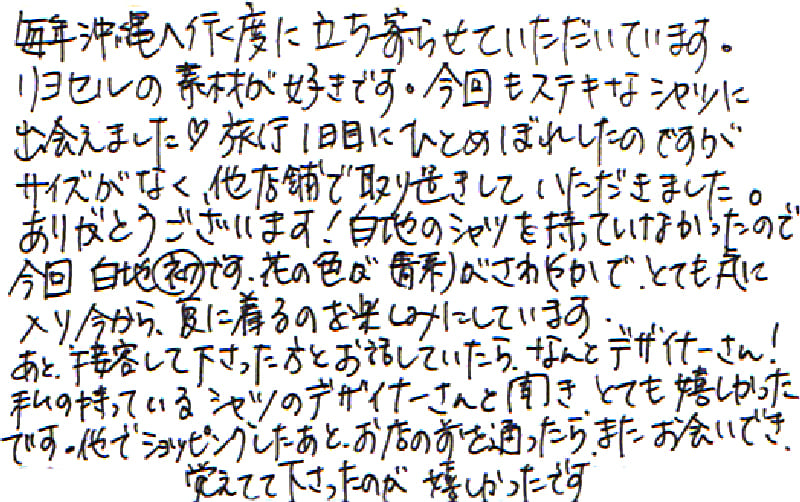 毎年沖縄へ行く度に立ち寄らせていただいています。
リヨセルの素材が好きです。今回もステキなシャツに
出会えました♡旅行1日目にひとめぼれしたのですが
サイズがなく、他店舗で取り置きしていただきました。
ありがとうございます!白地のシャツを持っていなかったので
今回 白地初です。花の色が(青系)がさわやかで、とても気に
入り今から、夏に着るのを楽しみにしています。
あと、接客して下さった方とお話していたら、なんとデザイナーさん!
私の持っているシャツのデザイナーさんと聞きとても嬉しかった
です。他でショッピングしたあと、お店の前を通ったら、またお会いでき、
覚えてて下さったのが嬉しかったです